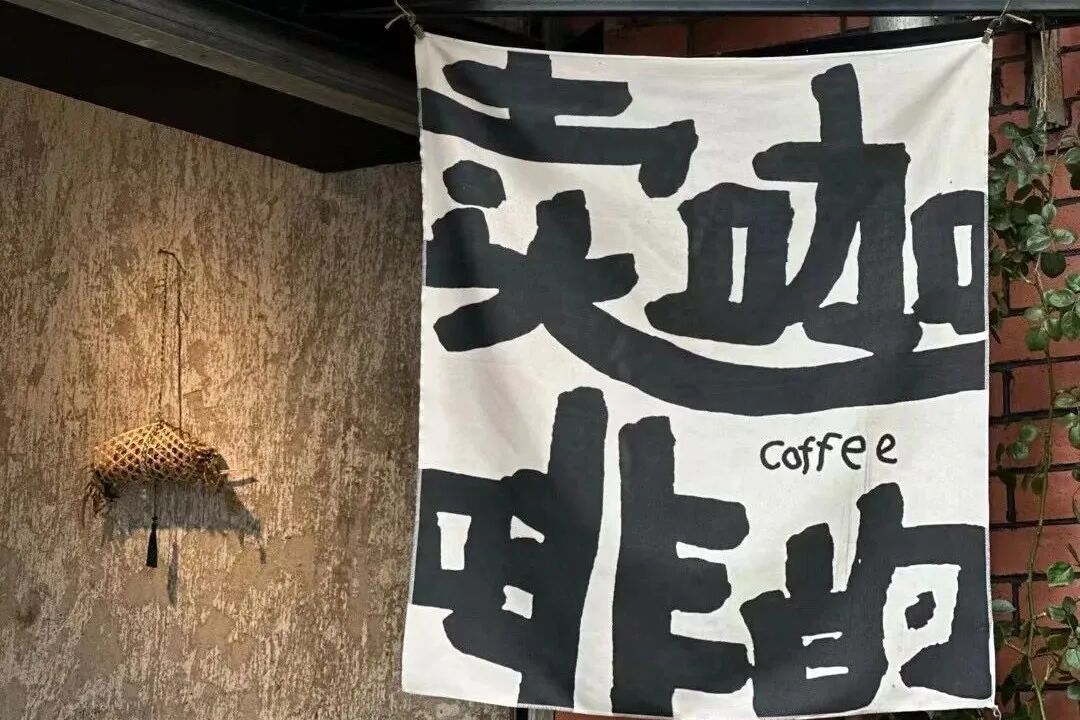 卖咖
coffee
啡的